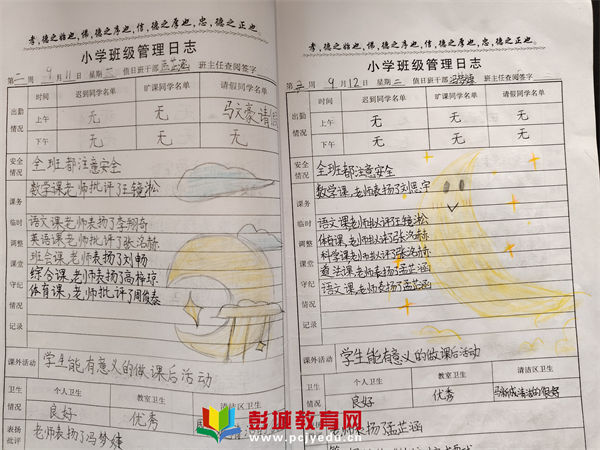 孝,德之始也,悌,德之序也,信,德之厚也,忠,德之正也。
小学班级管理日志
第二周 9月11日 星期一 值日班干部 孟芷涵 班主任查阅签字
出勤情况
时间 迟到同学名单 旷课同学名单 请假同学名单
上午 无 无 马文豪请假
下午 无 无 无
安全情况 全班都注意安全
课务临时调整
课堂守纪情况记录
数学课老师批评了汪镜淞
语文课,老师表扬了李翔奇
英语课老师批评了张洺赫
班会课,老师表扬了刘畅
综合课,老师表扬了高梓琼
体育课,老师批评了周俊泰
课外活动 学生能有意义的做课后活动
卫生情况
个人卫生 教室卫生 清洁区卫生
良好 优秀
表扬批评 老师表扬了冯梦婕
孝,德之始也,悌,德之序也,信,德之厚也,忠,德之正也。
小学班级管理日志
第二周 9月12日 星期二 值日班干部 班主任查阅签字
出勤情况
时间 迟到同学名单 旷课同学名单 请假同学名单
上午 无 无 无
下午 无 无 无
安全情况 全班都注意安全
课务临时调整
课堂守纪情况记录
数学课,老师表扬了刘思宇
语文课老师批评汪镜淞
体育课,老师批评了张洺赫
科学课老师批评了张洺赫
道法课,老师表扬了孟芷涵
语文课,老师表扬了孟芷涵
课外活动 学生能有意义的做课后活动
卫生情况
个人卫生 教室卫生 清洁区卫生
良好 优秀
老师表扬了孟芷涵
彭城教育网
www.pcjyedu.cn